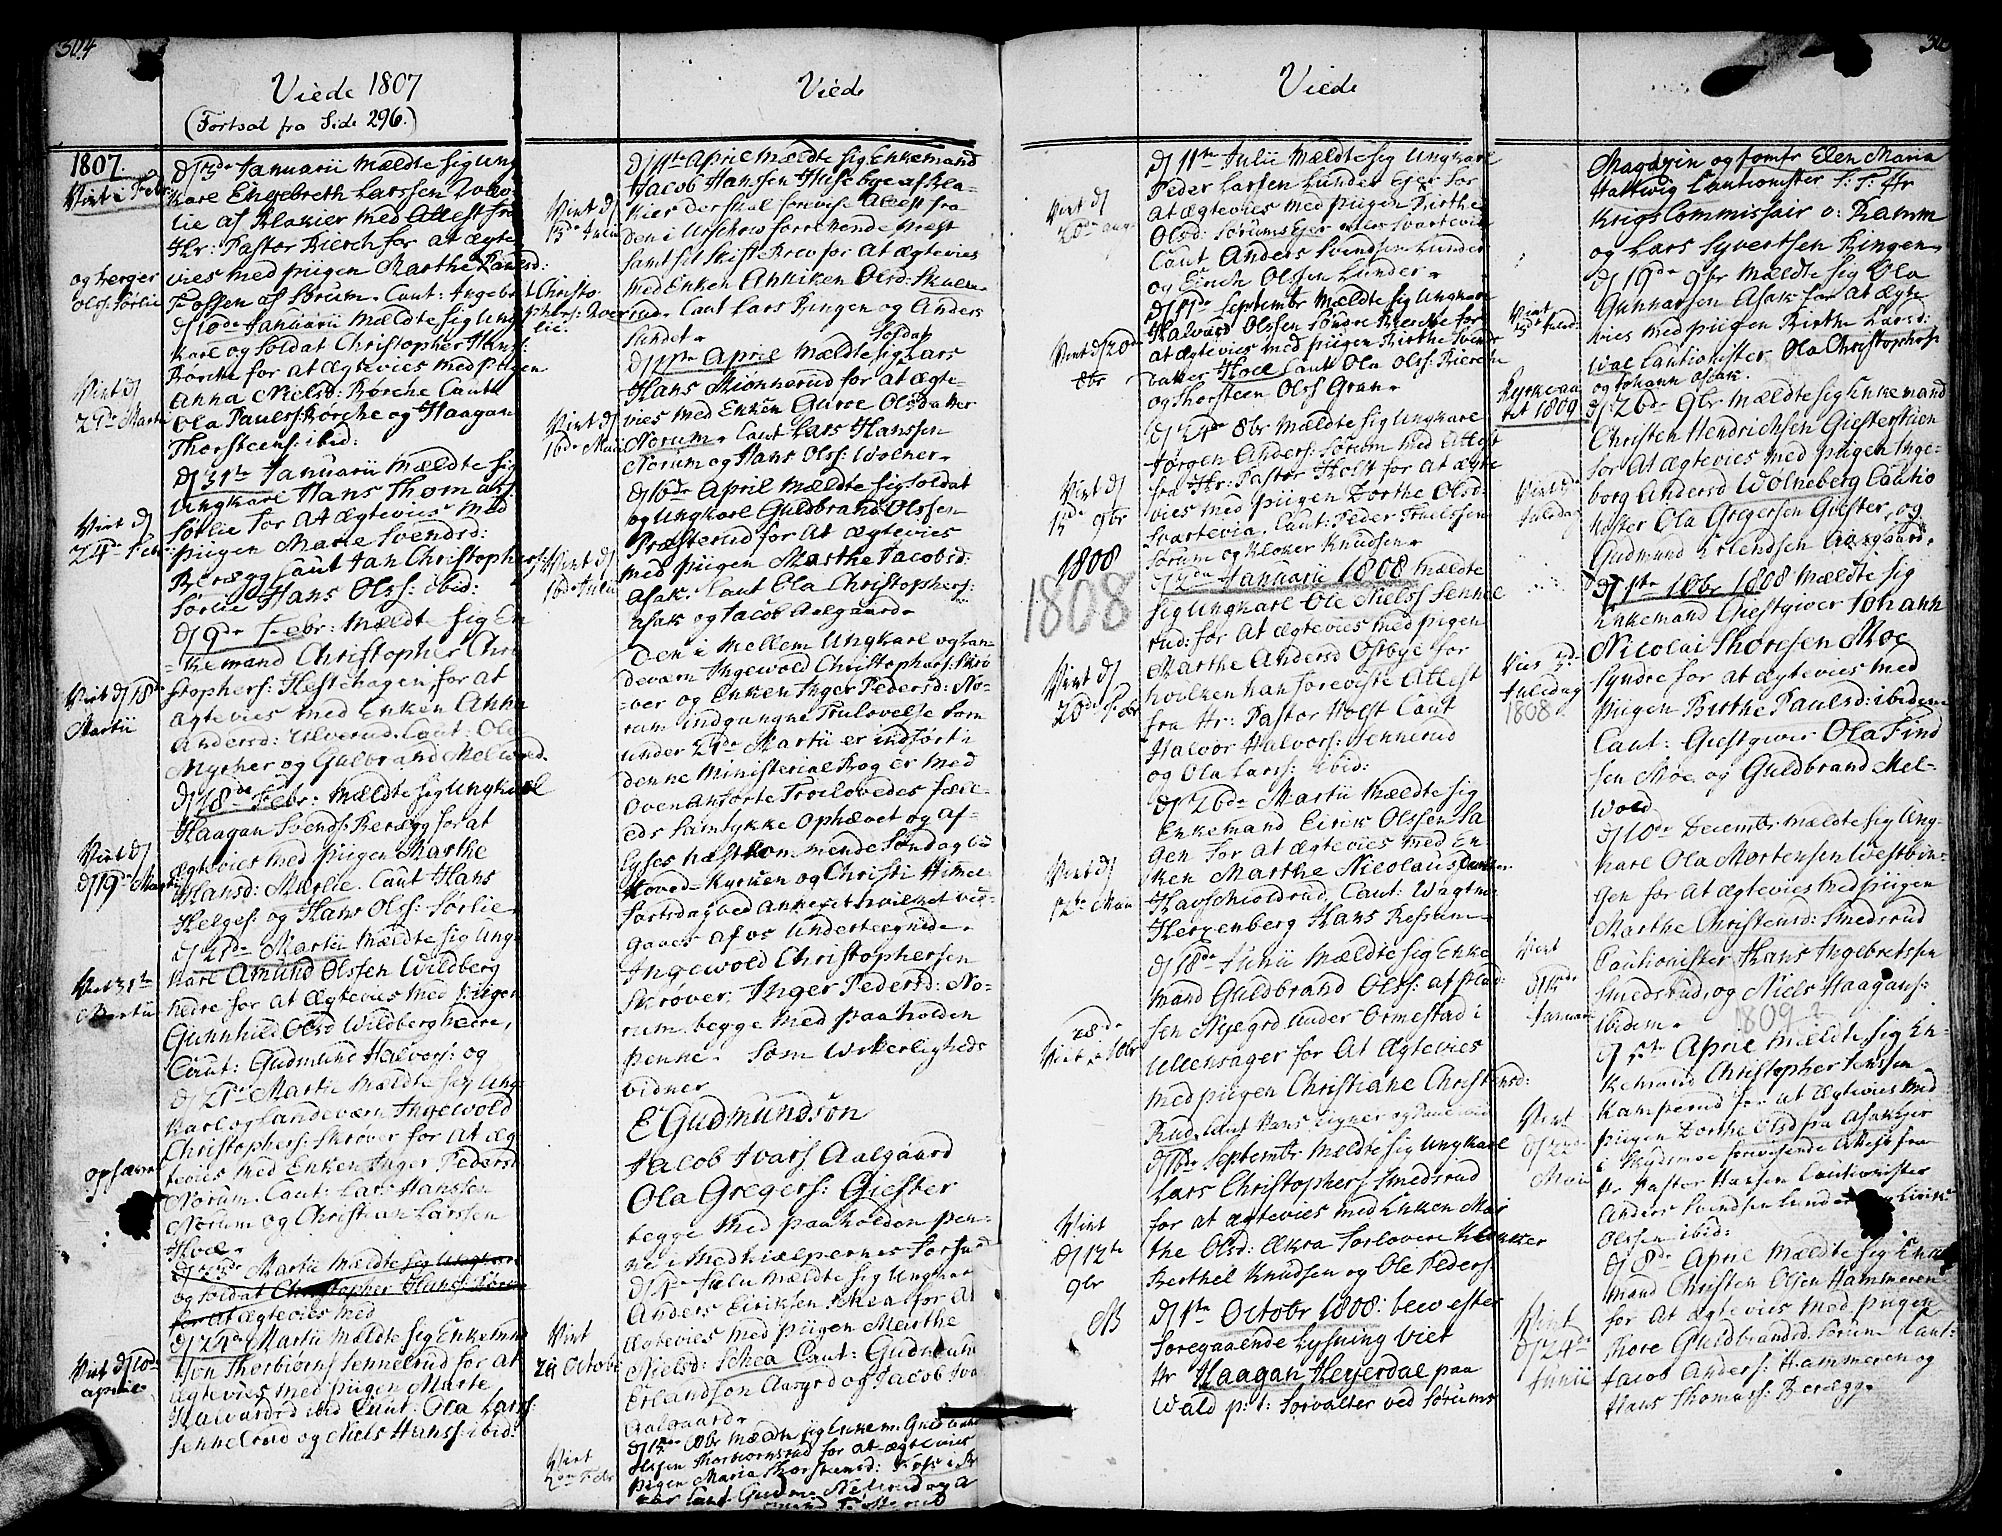 304
Viede 1807
(Fortsat fra Side 296.)
1807.
Viet i Febr:
dj 13de Januarii Mældte sig Ung
karl Engebreth Larssen
lie af Blakier med Attest fra
Hr: Pastor Bierch for at ægte
vies med piigen Marthe Paulsd:
Fossen af Sørum. Caut: Ingebret Christo
phers:
og Herger
Ols: Sørlie
dj 10de Januarii Mældte sig Ung
karl og Soldat Christopher Hans:
Børche for at ægtevies med Piigen
Anna Nielsd: Børche Caut
Ola Pauls: Børche og Haagan
Thorsteens: ibid:
Viet dj
29de Martii
dj 31te Januarii Mældte sig
Ungkarl Hans Thomass:
Sørlie for at ægtevies med
piigen Marie Svendsd:
Berægg Caut Jan Christophers:
Sørlie Hans Olss: ibid:
Viet dj
24de Febr:
dj 9de Febr: Mældte sig En
kemand Christopher Chri
stophers: Hestehagen for at
ægtevies med Enken Anna
Andersd: Ulverud. Caut: Ola
Myrher og Gulbrand Melvold
Viet dj 18de
Martii
dj 18de Febr: Mældte sig Ungkarl
Haagan Svends: Berægg for at
ægtevies med piigen Marthe
Hansd: Mærlie. Caut Hans
Helges: og Hans Olss: Sørlie
Viet dj
dj 19de Martii
dj 21de Martii Mældte sig Ung
karl Amund Olssen Wildberg
nedre for at ægtevies med piigen
Gunnhild Olsd Wildberg nedre,
Caut: Gudmund Halvors: og
Viet 31te
Martii
dj 21de Martii Mældte sig Ung
karl og Landeværn Ingewold
Christophers: Skrøver for at æg
tevies med Enken Inger Pedersd:
Norum. Caut: Lars Hanssen
Norum og Christian Larssen
Hoel.
opsævet
dj 23de Martii Mældte sig Ungkarl
og soldat Christopher Hans:
for at ægtevies med
dj 24de Martii Mældte sig Enkemand
Jon Thorbiørns: Sennelrud for at
ægtevies med piigen Marte
Halvardsd ibid Caut: Ola Lars:
Sennelrud og Niels Hans: ibid:
Viet dj 10de
Aprilis
Viede
dj 11te April Mældte sig Enkemand
Jacob Hanssen Husebye af Bla
kier der skal forevise Attest fra
den i Urschow forrettende Præst
samt sit Skiftebrev for at ægtevies
med Enken Anniken Olsd: Skulle
rud. Caut Lars Ringen og Anders
Sundet.
Viet dj
13de Julii
dj 11te April Mældte sig Soldat Lars
Hans: Mionnerud for at ægte
vies med Enken Gurve Olsdatter
Norum. Caut Lars Hanssen
Norum og Hans Olss: Wolner.
Viet dj
16de Maii
dj 16de April Mældte sig soldat
og Ungkarl Guldbrand Olssen
Præsterud for at ægtevies
med Piigen Marthe Jacobsd:
Asak. Caut Ola Christophers:
Asak og Jacob Aalgaard.
Viet dj
16de Julii
Den i Mellem Ungkarl og Lan-
deværn Ingewold Christophers: Skrø
ver og Enken Inger Pedersd: No-
rum indgangne Trulovelse som
under 21de Martii er indført i
denne Ministerial Bog er med
ovenanførte Trolovedes fæl-
eds Samtykke ophævet og af-
lyses næstkommende Søndag ved
Hoved-Kyrken og Christi Himel
fartsdag ved annexet hvilket ved-
gaaes af os Undertegnede.
Ingewold Christophersen
Skrøver. Inger Pedersd: No-
rum. begge med paaholden
penne. Som Witterligheds
vidner
E Gudmundsøn
Jacob Ivars Aalgaard
Ola Gregers: Giester
begge med paaholden pen-
ne i Medhielpernes
dj 4de Julii Mældte sig Ungkarl
Anders Eiriksen Schea for at
ægtevies med piigen Marthe
Nielsd: Schea Caut: Gudmund
Erlandson Aasgrd og Jacob Iva
Aalgaard.
Viet
29 Octobr
dj 13de 10br Mældte sig Enkem: Guldbrand
Thorbiørnsrud for at ægtevies
piigen Maria Thorsteensd: Foss i
Caut Gudm:
Viet
Febr
Viede
dj 11te Julii Mældte sig Ungkarl
Peder Larsen Lunder Ejer for
at ægtevies med piigen Birthe
Olsd: Sørums Ejer Svartevia
Caut Anders Svendsen Lunder
og Eirich Olssen Lunder.
Viet dj
20de aug:
dj 17de Septembr Mældte sig Ungkarl
Halvard Olssen Søndre Bierche for
at ægtevies med piigen Birthe Svends
datter Hoel Caut Ola Olss: Bierche
og Thorsteen Olss: Gran.
Viet dj 20de
8br
dj 24de 8br Mældte sig Ungkarl
Jørgen Anders: Sørum med Attest
fra Hr: Pastor Holst for at ægte
vies med piigen Dorthe Olsd:
Svartevia. Caut: Peder Truelssen
Sørum og Kloker Knudsen.
Viet dj
15de 9br
1808
1808
dj 2den Januarii 1808 Mældte
sig Ungkarl Ole Niels: Senne
rud: for at ægtevies med piigen
Marthe Andersd Østbye for
hvilken han foreviste Attest
fra Hr: Pastor Holst Caut
Halvor Halvors: Sennerud
og Ola Lars: ibid:
Viet dj
20de Febr
dj 26de Martii Mældte sig
Enkemand Eirik Olssen Sa
gen for at ægtevies med En
ken Marthe Nicolausdatter
Haufschioldrud, Caut: Wagtm:
Hergenberg Hans Ressum.
Viet dj
12te Maii
dj 18de Junii Mældte sig Enke
mand Guldbrand Olss: af Plad
sen Nyegrd under Ormestad i
Ullensager for at ægtevies
med piigen Christiane Christensd:
Rud. Caut Hans Eigner og
28de
Viet i 10br
dj 16de Septembr Mældte sig Ungkarl
Lars Christophers: Smedsrud
for at ægtevies med Enken Mar
the Olsd: Ækra Forlovere Klokker
Berthel Knudsen og Ole Peders:
Viet
dj 12te
9br
NB
dj 1te Octobr 1808: blev efter
foregaaende Lysning Viet
Hr Haagan Heyerdal paa
Wald p: t: Forvalter ved Sørums
Magazin og Jomfr Elen Maria
Hallwig Cautionister S: T: Hr
Krigs Commissair v: Ramm
og Lars Syvertsen Ringen.
dj 19de 9br Mældte sig Ola
Gunnarsen Asak for at ægte
vies med piigen Birthe Larsd:
Wae Cautionister Ola Christophers:
og Johann Asak.
Viet
3de Juledag
Kyrkeaa
ret 1809
dj: 26de 9br Mældte sig Enkemand
Christen Hendrichsen Giesterstuen
for at ægtevies med piigen Inge-
borg Andersd Wølneberg Cautio
nister Ola Gregersen Giester, og
Gudmund Erlendsen Aasgaard.
Viet 3de
Juledag
dj 1te 10br 1808 Mældte sig
Enkemand Giestgiver Johann
Nicolai Thoresen Moe
syndre for at ægtevies med
Piigen Birthe Paulsd: ibidem
Caut: Giestgiver Ola Find
sen Moe, og Guldbrand Mel-
wold
Viet 3de
Juledag
1808
dj 10de Decembr Mældte sig Ung-
karl Ola Mortensen Westbin-
gen for at ægtevies med piigen
Marthe Christensd: Smedsrud
Cautionister Hans Ingebretssen
Smedsrud, og Niels Haagans:
ibidem.
Viet
dj
Januar
1809
dj 5te April Mældte sig En-
kemand Christopher Jenssen
Kamperud for at ægtevies med
piigen Dorthe Olsd fra Asak Ejer
i Skydsmoe forevisende Attest fra
Hr Pastor Hansen Cautionister
Anders Svendsen Lunder og Eirik
Olssen ibid:
Viet
dj 22de
Maii
dj 8de April Mældte sig Enke
mand Christen Olsen Hammeren
for at ægtevies med piigen
Thore Guldbrandsd: Sørum Caut:
Jacob Anders: Hammeren og
Hans Thomass: Berægg.
Viet
dj 24de
Junii